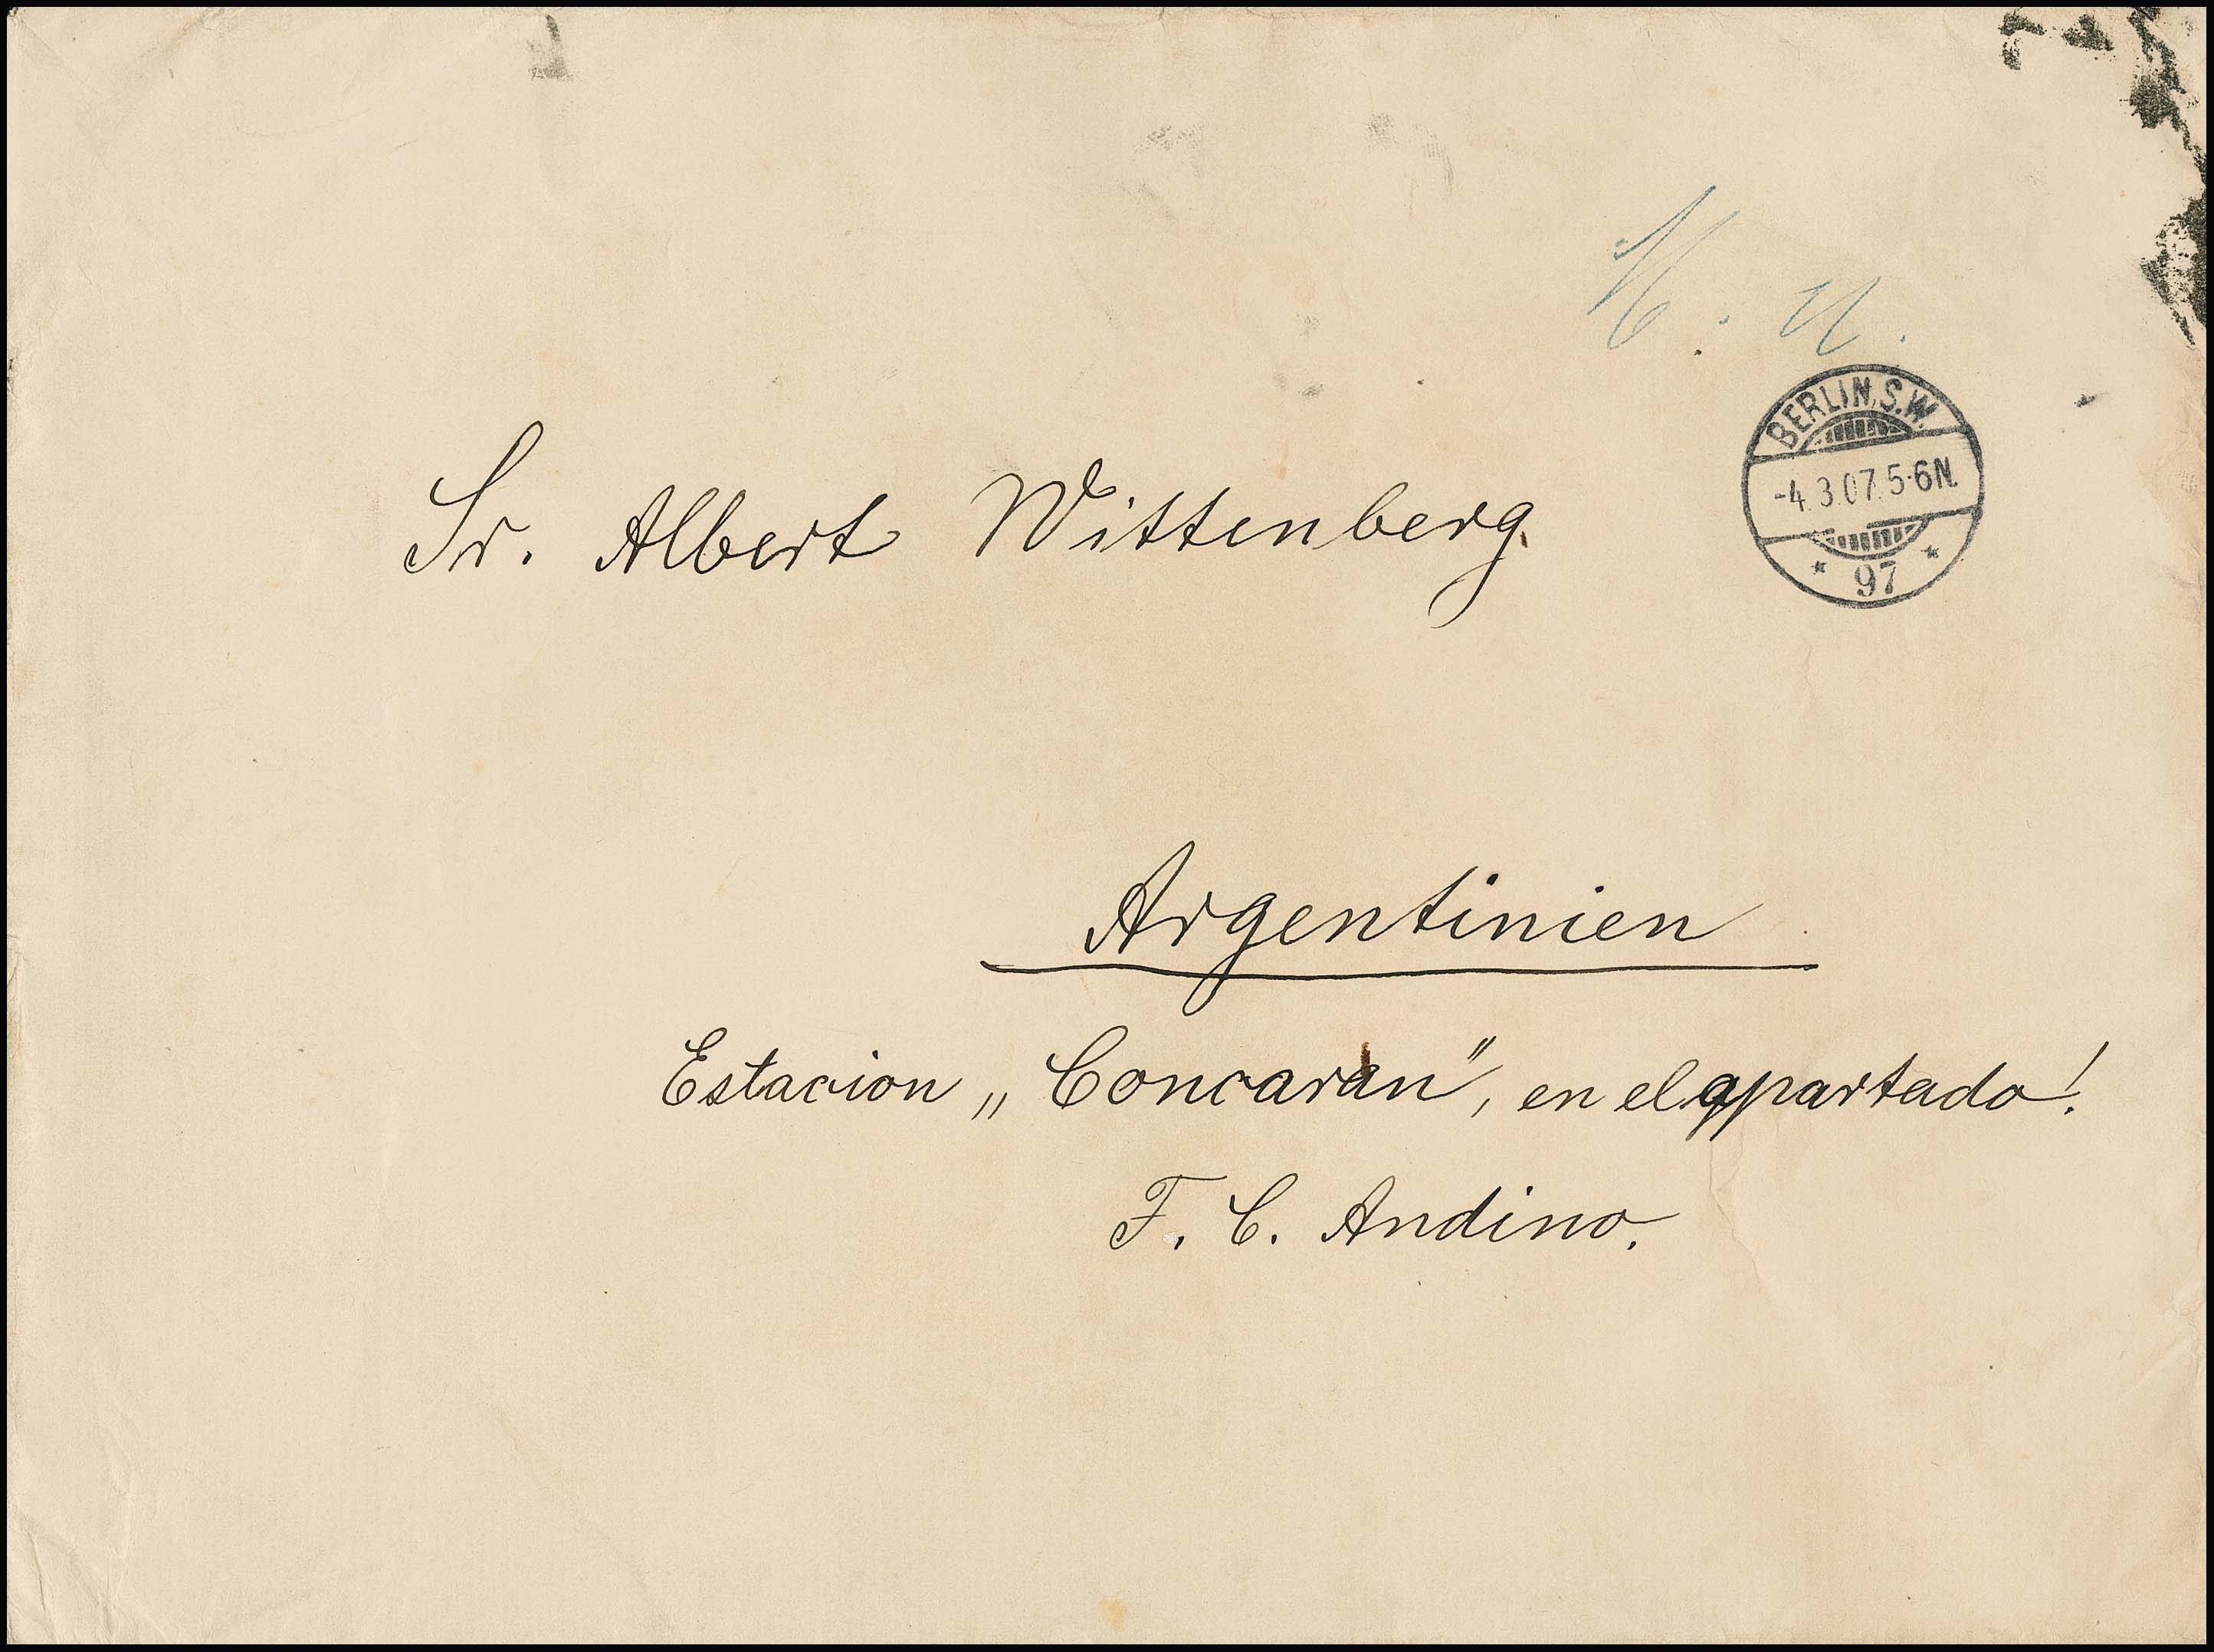 BERLIN, S.W.
-4.3.07.5-6N.
* 97 *
Sr. Albert Wittenberg.
Argentinien
Estacion „Concarán", en el apartado!
F. C. Andino.